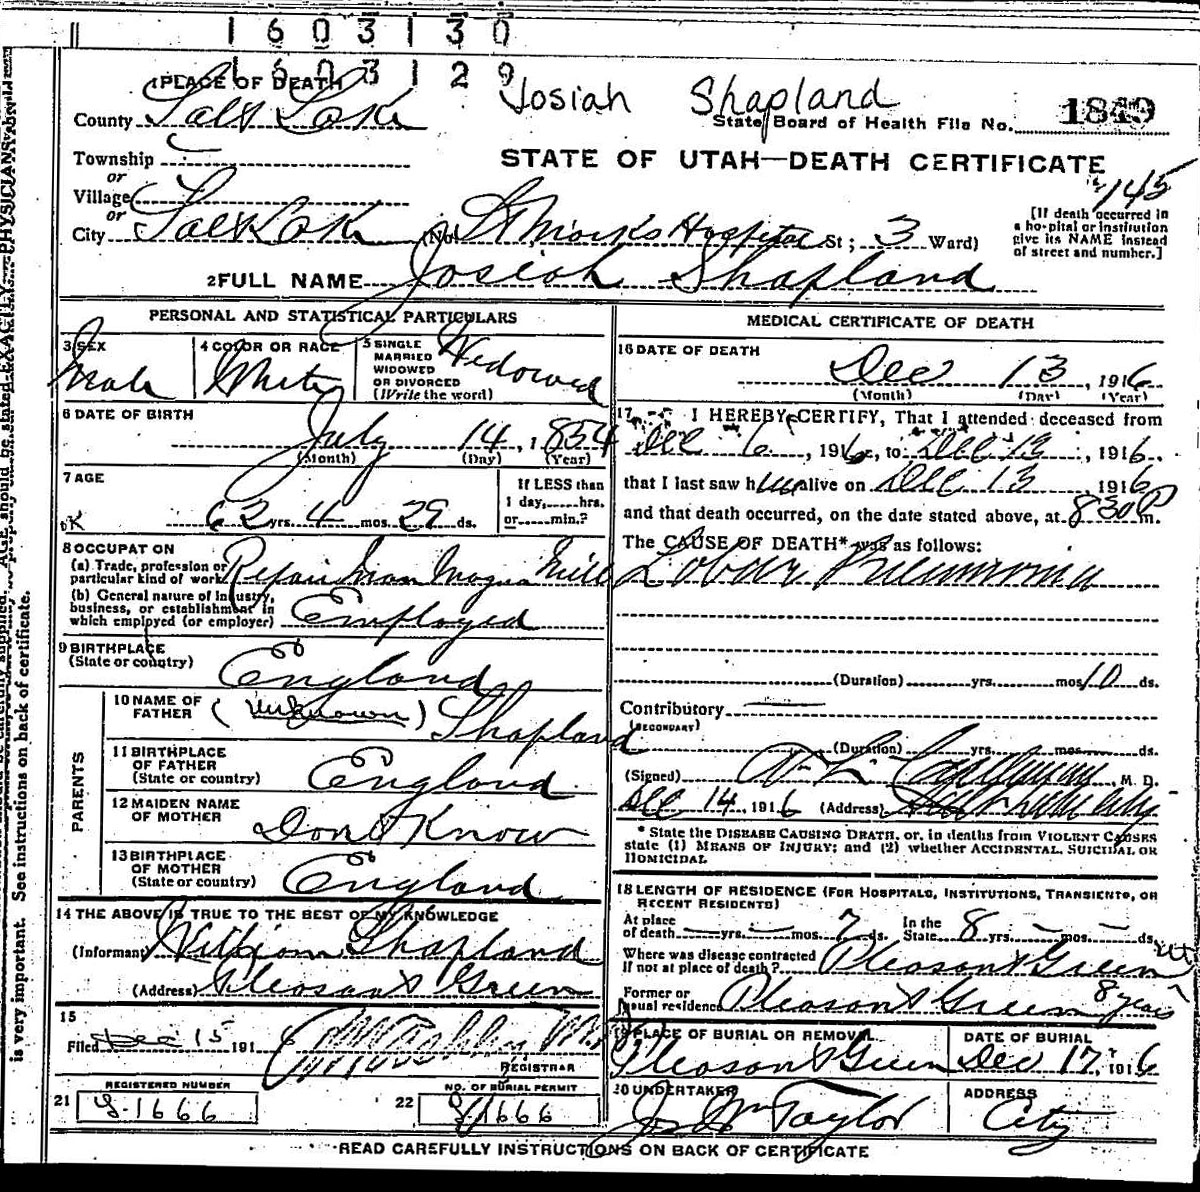 1603130
1603129
Josiah Shapland
1 PLACE OF DEATH
County Salt Lake
State Board of Health File No. 1849
Township
or
STATE OF UTAH—DEATH CERTIFICATE
145
Village
or
City Salt Lake (No. St Mark's Hospital St; 3 Ward)
[If death occurred in
a hospital or institution
give its NAME instead
of street and number.]
2 FULL NAME Josiah Shapland
PERSONAL AND STATISTICAL PARTICULARS
3 SEX Male
4 COLOR OR RACE White
5 SINGLE
MARRIED
WIDOWED
OR DIVORCED
(Write the word)
Widowed
6 DATE OF BIRTH
July 14, 1854
(Month) (Day) (Year)
7 AGE
62 yrs. 4 mos. 29 ds.
If LESS than
1 day,......hrs.
or......min.?
OK
8 OCCUPATION
(a) Trade, profession or
particular kind of work Repair Man Magna Mill
(b) General nature of industry,
business, or establishment in
which employed (or employer) Employed
9 BIRTHPLACE
(State or country) England
PARENTS
10 NAME OF
FATHER (Unknown) Shapland
11 BIRTHPLACE
OF FATHER
(State or country) England
12 MAIDEN NAME
OF MOTHER Dont Know
13 BIRTHPLACE
OF MOTHER
(State or country) England
14 THE ABOVE IS TRUE TO THE BEST OF MY KNOWLEDGE
(Informant) William Shapland
(Address) Pleasant Green
15
Filed Dec 15 191
REGISTRAR
REGISTERED NUMBER
21 G-1666
NO. OF BURIAL PERMIT
22 G-1666
MEDICAL CERTIFICATE OF DEATH
16 DATE OF DEATH
Dec 13, 1916
(Month) (Day) (Year)
17 I HEREBY CERTIFY, That I attended deceased from
Dec 6, 1916, to Dec 13, 1916.
that I last saw him alive on Dec 13, 1916
and that death occurred, on the date stated above, at 830 P m.
The CAUSE OF DEATH* was as follows:
Lobar Pneumonia
(Duration) yrs. mos. 10 ds.
Contributory
(SECONDARY)
(Duration) yrs. mos. ds.
(Signed) M. D.
Dec 14, 1916 (Address)
* State the DISEASE CAUSING DEATH, or, in deaths from VIOLENT CAUSES
state (1) MEANS OF INJURY; and (2) whether ACCIDENTAL, SUICIDAL OR
HOMICIDAL
18 LENGTH OF RESIDENCE (FOR HOSPITALS, INSTITUTIONS, TRANSIENTS, OR
RECENT RESIDENTS)
At place
of death yrs. mos. 7 ds. In the
State 8 yrs. mos. ds.
Where was disease contracted
If not at place of death? Pleasant Green
Former or
usual residence Pleasant Green 8 years
19 PLACE OF BURIAL OR REMOVAL
Pleasant Green
DATE OF BURIAL
Dec 17, 1916
20 UNDERTAKER
J. Wm Taylor
ADDRESS
City
READ CAREFULLY INSTRUCTIONS ON BACK OF CERTIFICATE
is very important. See instructions on back of certificate.